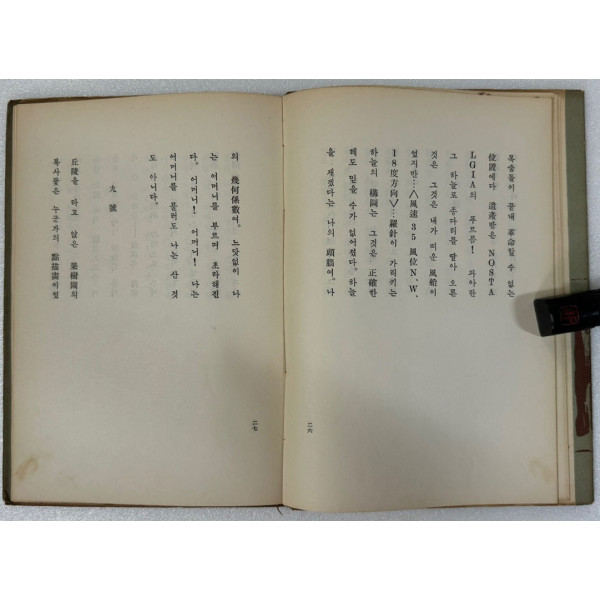 목숨들이 끝내 革命할 수 없는
位置에다 遺產받은 NOSTA
LGIA의 푸르름! 파아란
그 하늘로 종다리를 딸아 오른
것은 그것은 내가 띠운 風船이
었지만…∧風速 35 風位 N.W.
18度方向∨… 羅針이 가리키는
하늘의 構圖는 그것은 正確한
헤도 믿을 수가 없어졌다. 하늘
을 재겠다는 나의 頭腦여. 나
二六
의 幾何係數여. 느닷없이 나
는 어머니를 부르며 초라해진
다. 어머니! 어머니! 나는
어머니를 불러도 나는 산 것
도 아니다.
九號
丘陵을 타고 앉은 果樹園의
복사꽃은 누군가의 點描畵이었
二七